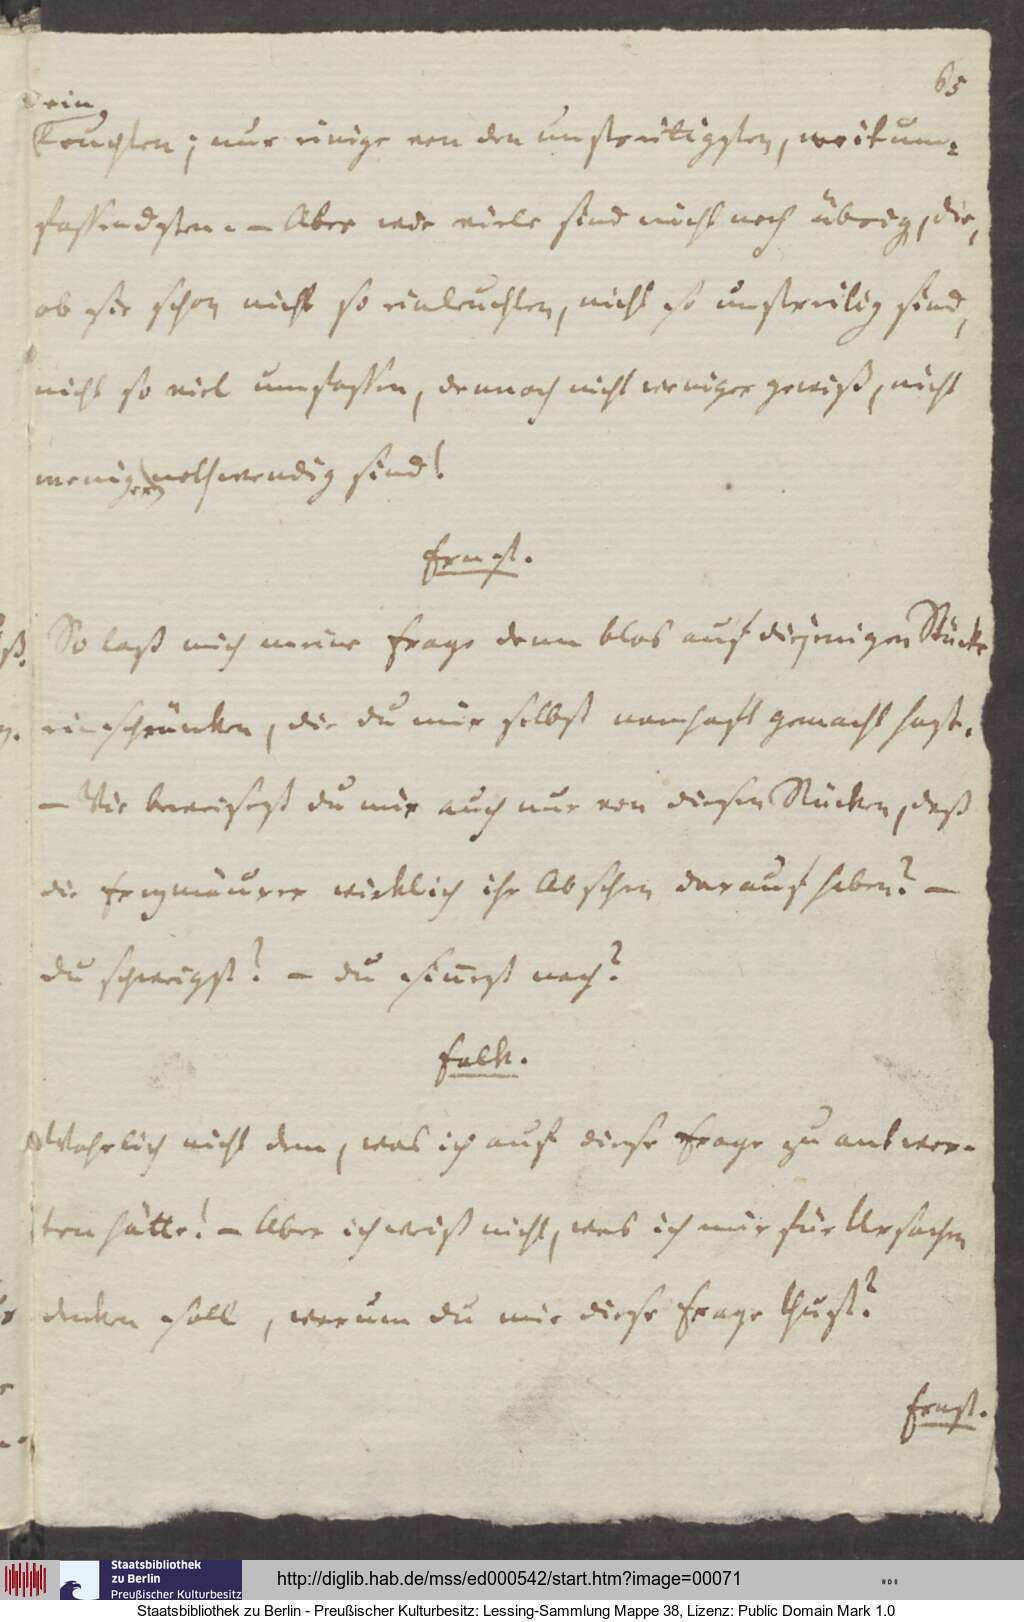 65
ein
leuchten; nur einige von den unstreitigsten, weitum-
fassendsten. – Aber wie viele sind nicht noch übrig, die,
ob sie schon nicht so einleuchten, nicht so unstreitig sind,
nicht so viel umfassen, dennoch nicht weniger gewiß, nicht
weniger nothwendig sind!
Ernst.
So laß mich meine Frage denn blos auf diejenigen Stücke
einschränken, die du mir selbst namhaft gemacht hast.
– Wie beweisest du mir auch nur von diesen Stücken, daß
die Freymäurer wirklich ihr Absehen darauf haben? –
du schweigst? – du sinnest nach?
Falk.
Wahrlich nicht dem, was ich auf diese Frage zu antwor-
ten hätte! – Aber ich weiß nicht, was ich mir für Ursachen
denken soll, warum du mir diese Frage thust?
Ernst.
Staatsbibliothek
zu Berlin
Preußischer Kulturbesitz
http://diglib.hab.de/mss/ed000542/start.htm?image=00071
Staatsbibliothek zu Berlin - Preußischer Kulturbesitz: Lessing-Sammlung Mappe 38, Lizenz: Public Domain Mark 1.0